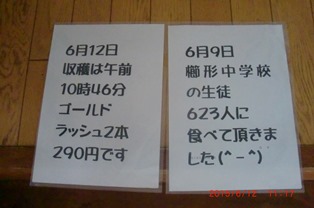 6月12日
収穫は午前
10時46分
ゴールド
ラッシュ2本
290円です
6月9日
櫛形中学校
の生徒
623人に
食べて頂きま
した(^-^)